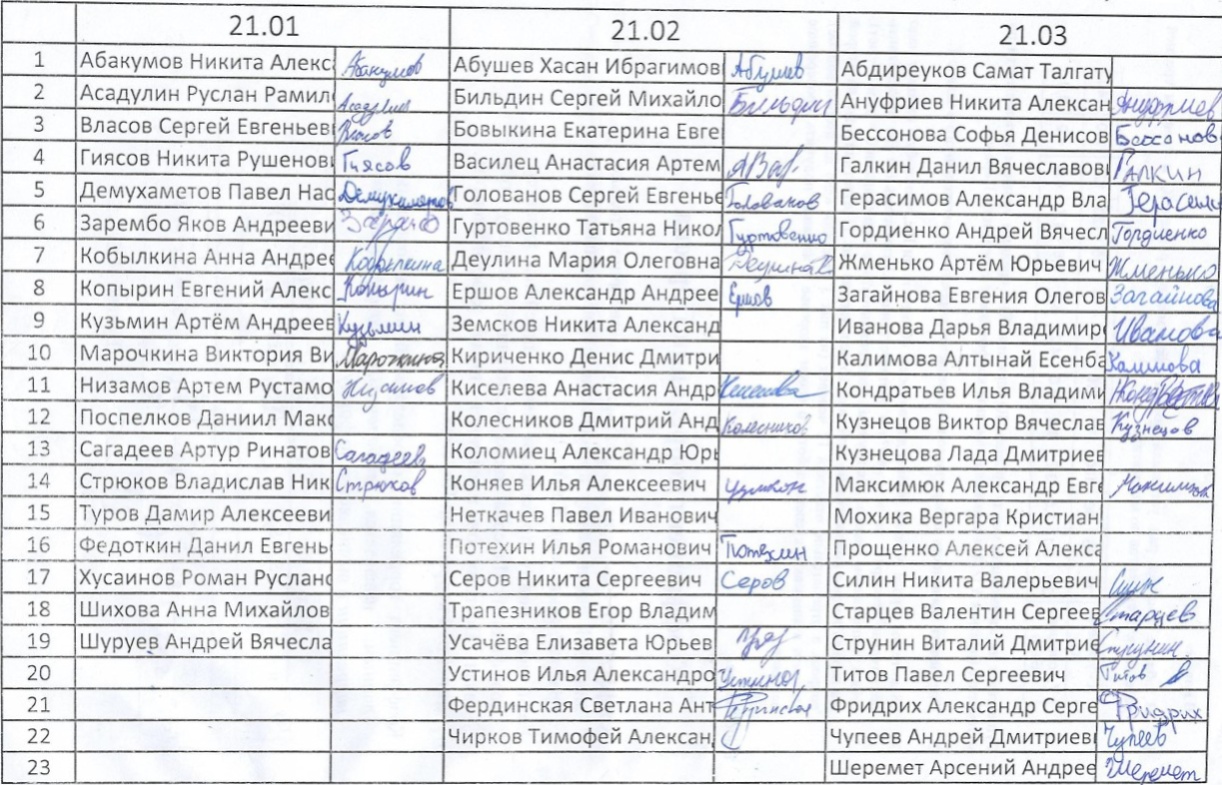 21.01 21.02 21.03
1 Абакумов Никита Алекс Абакумов Абушев Хасан Ибрагимов Абушев Абдиреуков Самат Талгату
2 Асадулин Руслан Рамил Асадулин Бильдин Сергей Михайло Бильдин Ануфриев Никита Алексан Ануфриев
3 Власов Сергей Евгеньев Власов Бовыкина Екатерина Евге Бессонова Софья Денисов Бессонов
4 Гиясов Никита Рушенов Гиясов Василец Анастасия Артем Галкин Данил Вячеславов Галкин
5 Демухаметов Павел Нас Демухаметов Голованов Сергей Евгенье Голованов Герасимов Александр Вла Герасим
6 Зарембо Яков Андрееви Гуртовенко Татьяна Никол Гуртовенко Гордиенко Андрей Вячесл Гордиенко
7 Кобылкина Анна Андрее Кобылкина Деулина Мария Олеговна Деулина Жменько Артём Юрьевич Жменько
8 Копырин Евгений Алекс Копырин Ершов Александр Андрее Ершов Загайнова Евгения Олегов Загайнова
9 Кузьмин Артём Андреев Кузьмин Земсков Никита Александ Иванова Дарья Владимир Иванова
10 Марочкина Виктория Ви Марочкина Кириченко Денис Дмитри Калимова Алтынай Есенба Калимова
11 Низамов Артем Рустамо Низамов Киселева Анастасия Андр Киселева Кондратьев Илья Владими Кондратьев
12 Поспелков Даниил Мак Колесников Дмитрий Анд Колесников Кузнецов Виктор Вячеслав Кузнецов
13 Сагадеев Артур Ринатов Сагадеев Коломиец Александр Юр Кузнецова Лада Дмитриев
14 Стрюков Владислав Ник Стрюков Коняев Илья Алексеевич Максимюк Александр Евге Максимюк
15 Туров Дамир Алексееви Неткачев Павел Иванович Мохика Вергара Кристиан
16 Федоткин Данил Евгень Потехин Илья Романович Потехин Прощенко Алексей Алекса
17 Хусаинов Роман Руслано Серов Никита Сергеевич Серов Силин Никита Валерьевич
18 Шихова Анна Михайлов Трапезников Егор Владим Старцев Валентин Сергеев Старцев
19 Шуруев Андрей Вячесла Усачёва Елизавета Юрьев Струнин Виталий Дмитрие Струнин
20 Устинов Илья Александро Устинов Титов Павел Сергеевич Титов
21 Фердинская Светлана Ант Фердинская Фридрих Александр Серге Фридрих
22 Чирков Тимофей Алексан Чупеев Андрей Дмитриев Чупеев
23 Шеремет Арсений Андрее Шеремет